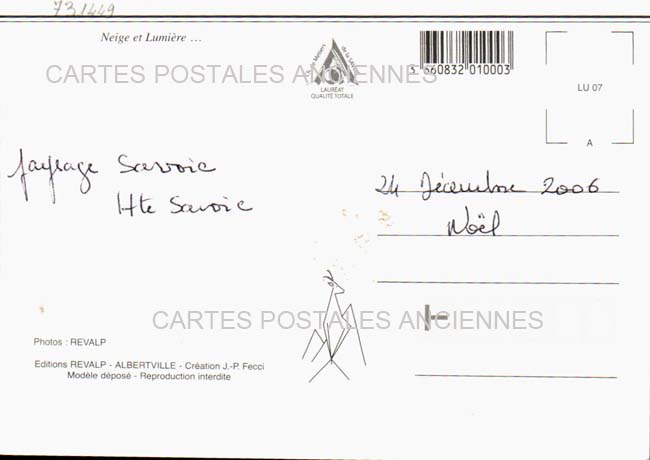 73/449
Neige et Lumière ...
CARTES POSTALES ANCIENNES
LAURÉAT
QUALITÉ TOTALE
3 660832 010003
LU 07
A
paysage Savoie
Hte Savoie
24 Décembre 2006
Noël
CARTES POSTALES ANCIENNES
Photos : REVALP
Editions REVALP - ALBERTVILLE - Création J.-P. Fecci
Modèle déposé - Reproduction interdite